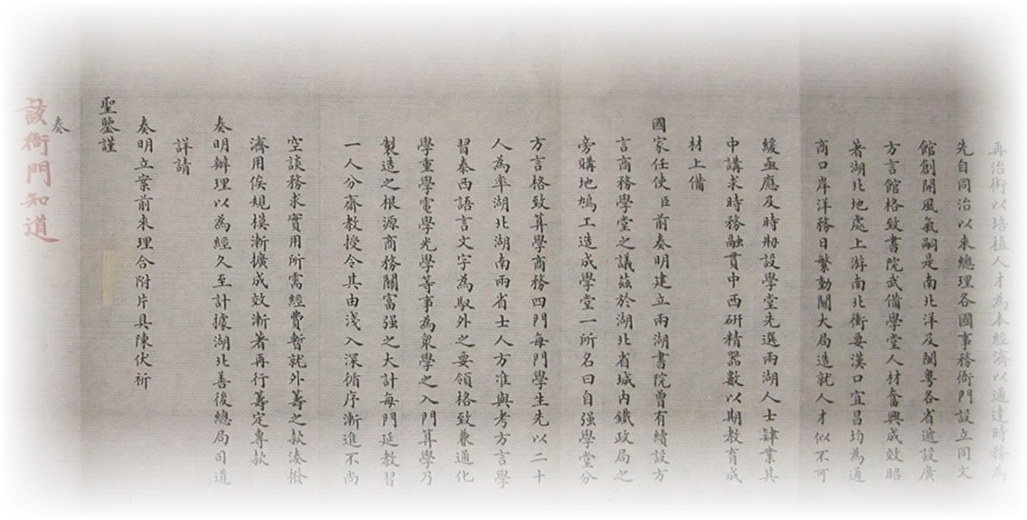 再治術以培植人才為本經濟以通達時務為
先自同治以來總理各國事務衙門設立同文
館創開風氣嗣是南北洋及閩粵各省遞設廣
方言館格致書院武備學堂人材奮興成效昭
著湖北地處上游南北衝要漢口宜昌均為通
商口岸洋務日繁動關大局造就人才似不可
緩亟應及時刱設學堂先選兩湖人士肄業其
中講求時務融貫中西研精器數以期教育成
材上備
國家任使臣前奏明建立兩湖書院曾有續設方
言商務學堂之議茲於湖北省城內鐵政局之
旁購地鳩工造成學堂一所名曰自强學堂分
方言格致算學商務四門每門學生先以二十
人為率湖北湖南兩省士人方准與考方言學
習泰西語言文字為馭外之要領格致兼通化
學重學電學光學等事為衆學之入門算學乃
製造之根源商務關富强之大計每門延教習
一人分齋教授令其由淺入深循序漸進不尚
空談務求實用所需經費暫就外籌之款湊撥
濟用俟規模漸擴成效漸著再行籌定專款
奏明辦理以為經久至計據湖北善後總局司道
詳請
奏明立案前來理合附片具陳伏祈
聖鑒謹
奏
該衙門知道